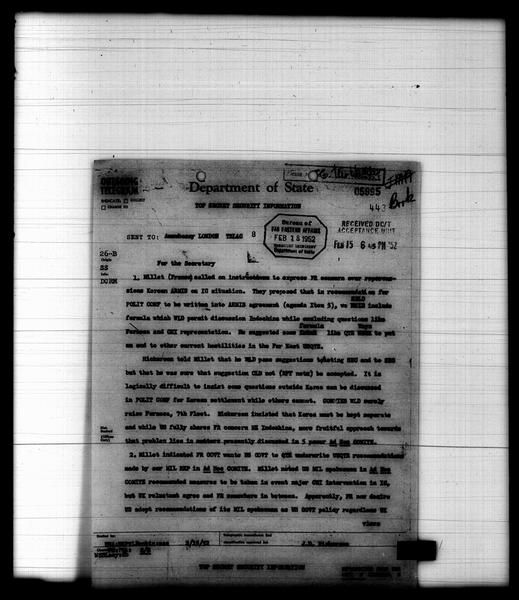 OUTGOING
TELEGRAM
INDICATE: COLLECT
CHARGE TO
Department of State
05995
443
TOP SECRET SECURITY INFORMATION
Bureau of
FAR EASTERN AFFAIRS
FEB 18 1952
Department of State
RECEIVED DC/T
ACCEPTANCE UNIT
FEB 15 6 45 PM '52
SENT TO: Amembassy LONDON TELAC 8
26-B
Origin
SS
Info.
DCRM
For the Secretary
1. Millet (France) called on instructions to express FR concern over repercus-
sions Korean ARMIS on IC situation. They proposed that in recommendation for
HELD
POLIT CONF to be written into ARMIS agreement (agenda Item 5), we include
formula which WLD permit discussion Indochina while excluding questions like
Formula
Formosa and CHI representation. He suggested some like QTE to put
an end to other current hostilities in the Far East UNQTE.
Hickerson told Millet that he WLD pass suggestions to
but that he was sure that suggestion CLD not (RPT not) be accepted. It is
logically difficult to insist some questions outside Korea can be discussed
in POLIT CONF for Korean settlement while others cannot. COMMIES WLD surely
raise Formosa, 7th Fleet. Hickerson insisted that Korea must be kept separate
and while US fully shares FR concern RE Indochina, more fruitful approach towards
that problem lies in matters presently discussed in 5 power Ad Hoc COMITE.
2. Millet indicated FR GOVT wants US GOVT to QTE underwrite UNQTE recommendations
made by our MIL REP in Ad Hoc COMITE. Millet noted US MIL spokesman in Ad Hoc
COMITE recommended measures to be taken in event major CHI intervention in IC,
but UK reluctant agree and FR somewhere in between. Apparently, FR now desire
US adopt recommendations of its MIL spokesman as US GOVT policy regardless UK
views
Drafted by:
2/15/52
Telegraphic transmission and
classification approved by:
J.D. Hickerson
TOP SECRET SECURITY INFORMATION